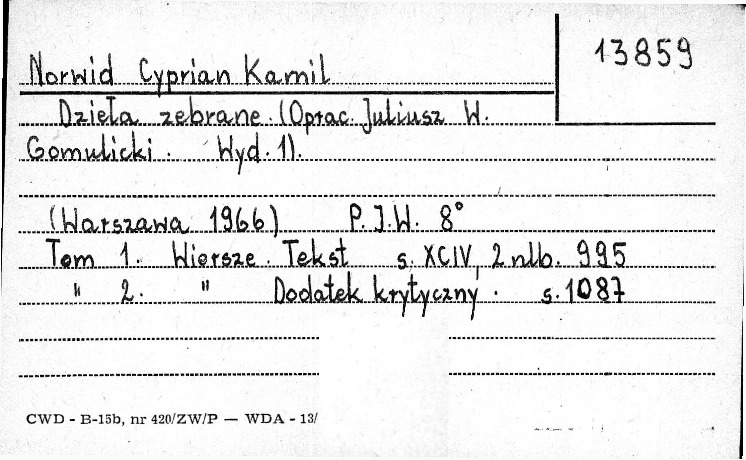 13859
Norwid Cyprian Kamil
Dzieła zebrane. (Oprac. Juliusz W.
Gomulicki. Wyd. 1).
(Warszawa 1966) P.I.W. 8°
Tom 1. Wiersze. Tekst s. XCIV, 2 nlb. 995
" 2. " Dodatek krytyczny. s. 1087
CWD - B-15b, nr 420/ZW/P — WDA - 13/